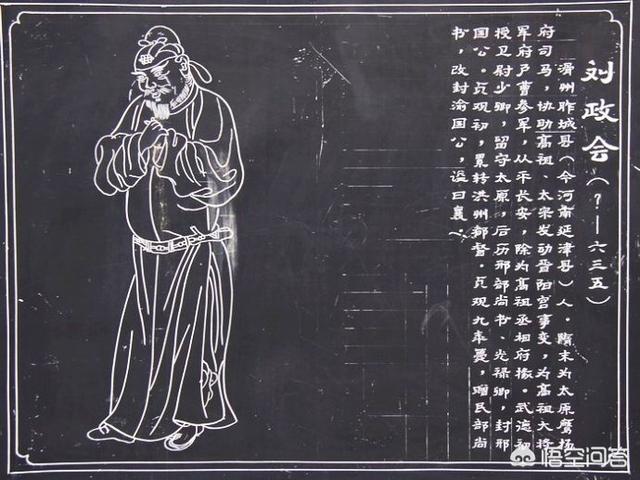 刘政会(?—六三五)
滑州胙城县(今河南延津县)人。隋末为太原鹰扬
府司马,协助高祖、太宗发动晋阳宫事变,为高祖大将
军府户曹参军,从平长安,除为高祖丞相府掾。武德初
授卫尉少卿,留守太原,后历刑部尚书、光禄卿,封邢
国公。贞观初,累转洪州都督。贞观九年薨,赠民部尚
书,改封渝国公,谥曰襄。
悟空问答